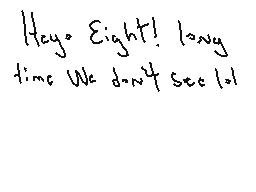 Heyo Eight! long
time we don't see lol